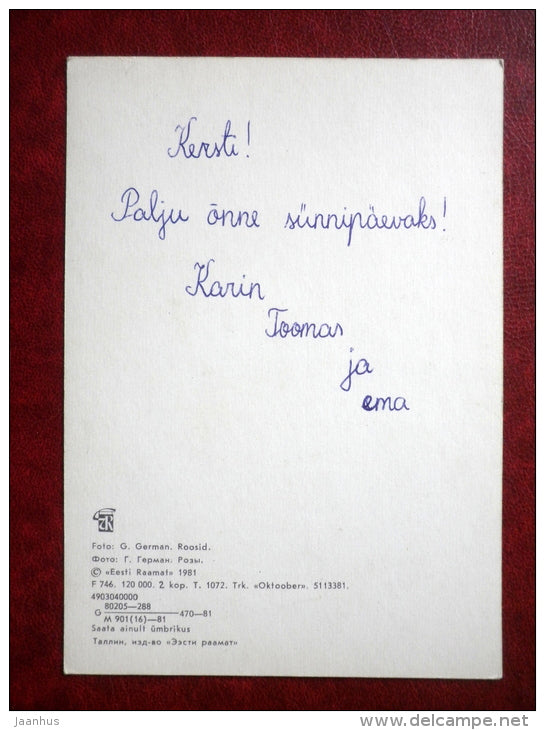 Kersti!
Palju õnne sünnipäevaks!
Karin
Toomas
ja
ema
Foto: G. German. Roosid.
Фото: Г. Герман. Розы.
© «Eesti Raamat» 1981
F 746. 120 000. 2 kop. T. 1072. Trk. «Oktoober». 5113381.
4903040000
80205—288
G 470—81
M 901(16)—81
Saata ainult ümbrikus
Таллин, изд-во «Ээсти раамат»
jaanhus
delcampe.net